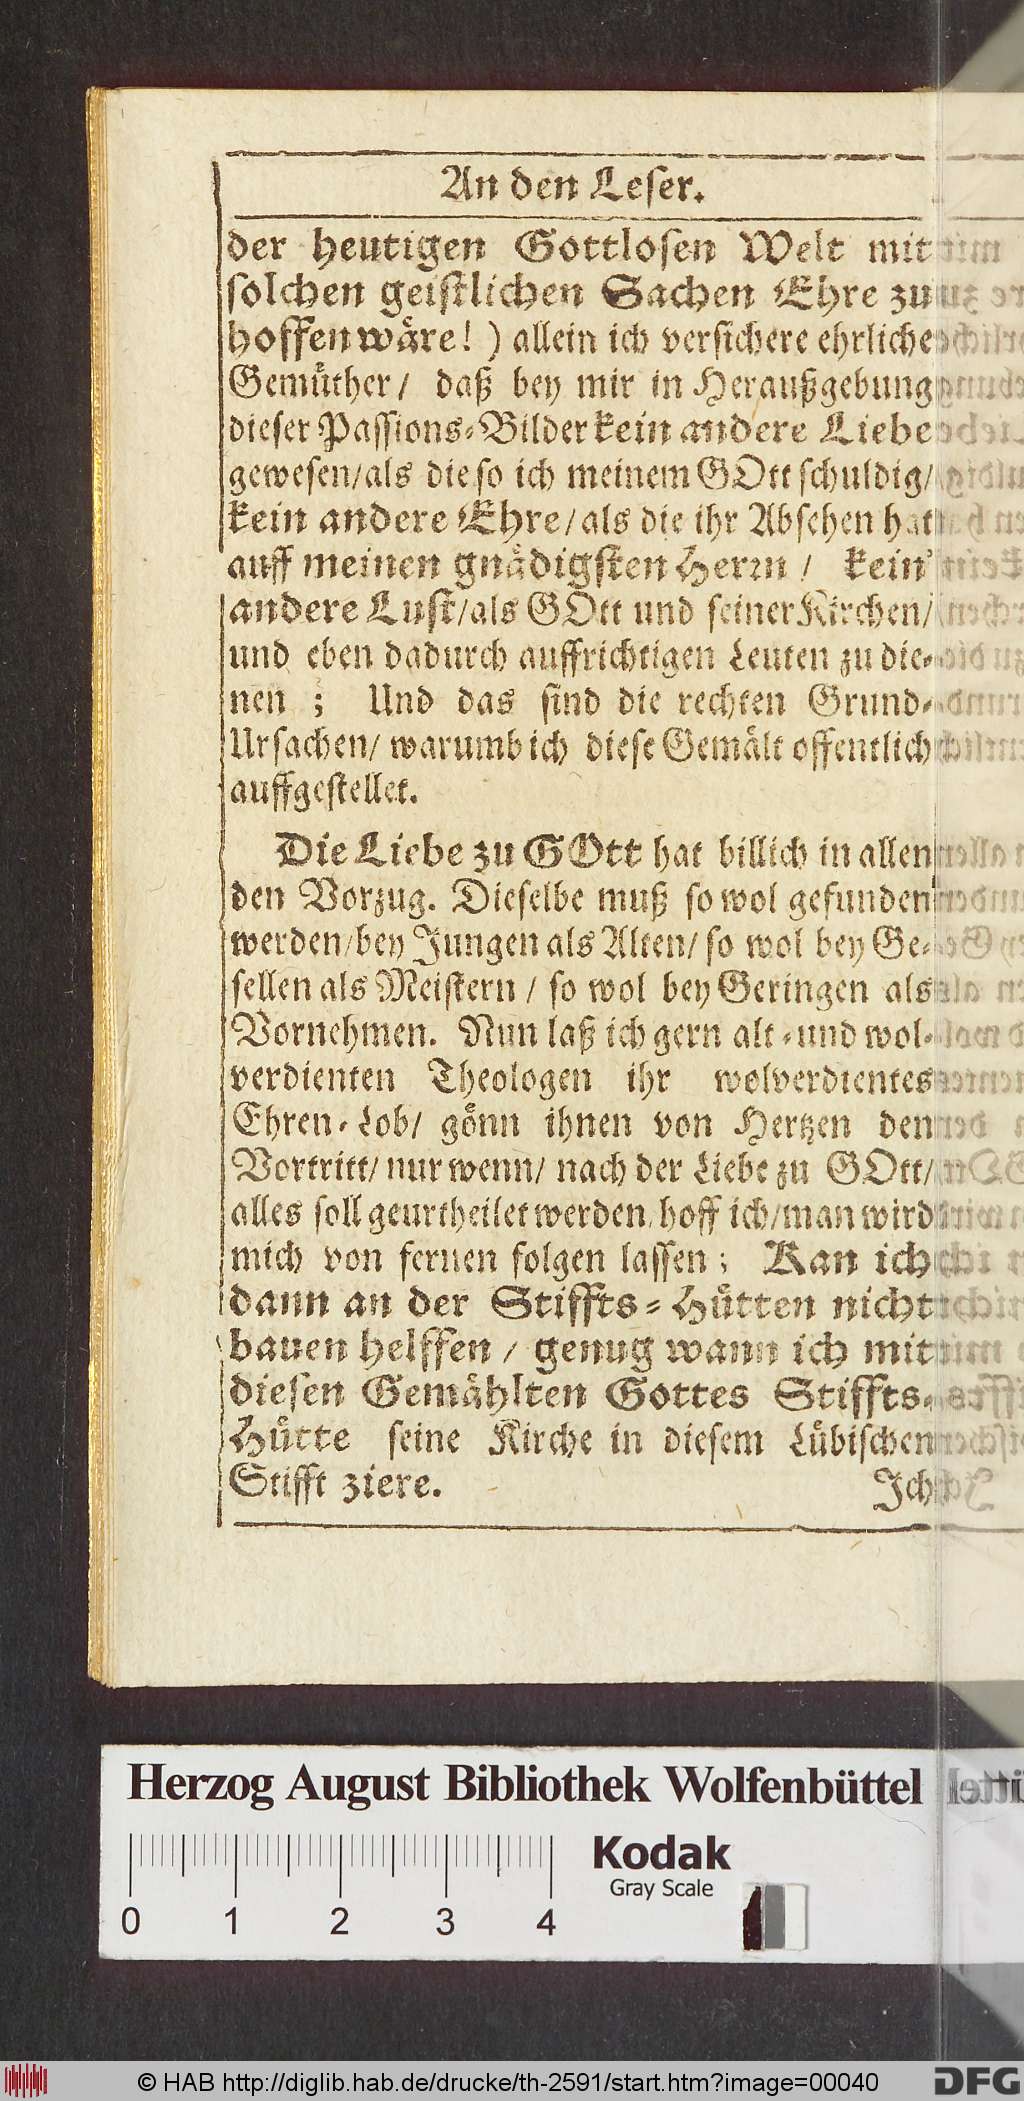 An den Leser.
der heutigen Gottlosen Welt mit
solchen geistlichen Sachen Ehre zu
hoffen wäre! ) allein ich versichere ehrliche
Gemüther / daß bey mir in Heraußgebung
dieser Passions-Bilder kein andere Liebe
gewesen / als die so ich meinem GOtt schuldig /
kein andere Ehre / als die ihr Absehen hat
auff meinen gnädigsten Herrn / kein
andere Lust / als GOtt und seiner Kirchen /
und eben dadurch auffrichtigen Leuten zu die-
nen ; Und das sind die rechten Grund-
Ursachen / warumb ich diese Gemält offentlich
auffgestellet.
Die Liebe zu GOtt hat billich in allen
den Vorzug. Dieselbe muß so wol gefunden
werden / bey Jungen als Alten / so wol bey Ge-
sellen als Meistern / so wol bey Geringen als
Vornehmen. Nun laß ich gern alt - und wol-
verdienten Theologen ihr wolverdientes
Ehren-Lob / gönn ihnen von Hertzen den
Vortritt / nur wenn / nach der Liebe zu GOtt /
alles soll geurtheilet werden / hoff ich / man wird
mich von fernen folgen lassen ; Kan ich
dann an der Stiffts-Hütten nicht
bauen helffen / genug wann ich mit
diesen Gemählten Gottes Stiffts-
Hütte seine Kirche in diesem Lübischen
Stifft ziere.
Ich
Herzog August Bibliothek Wolfenbüttel
Kodak
Gray Scale
0 1 2 3 4
© HAB http://diglib.hab.de/drucke/th-2591/start.htm?image=00040
DFG